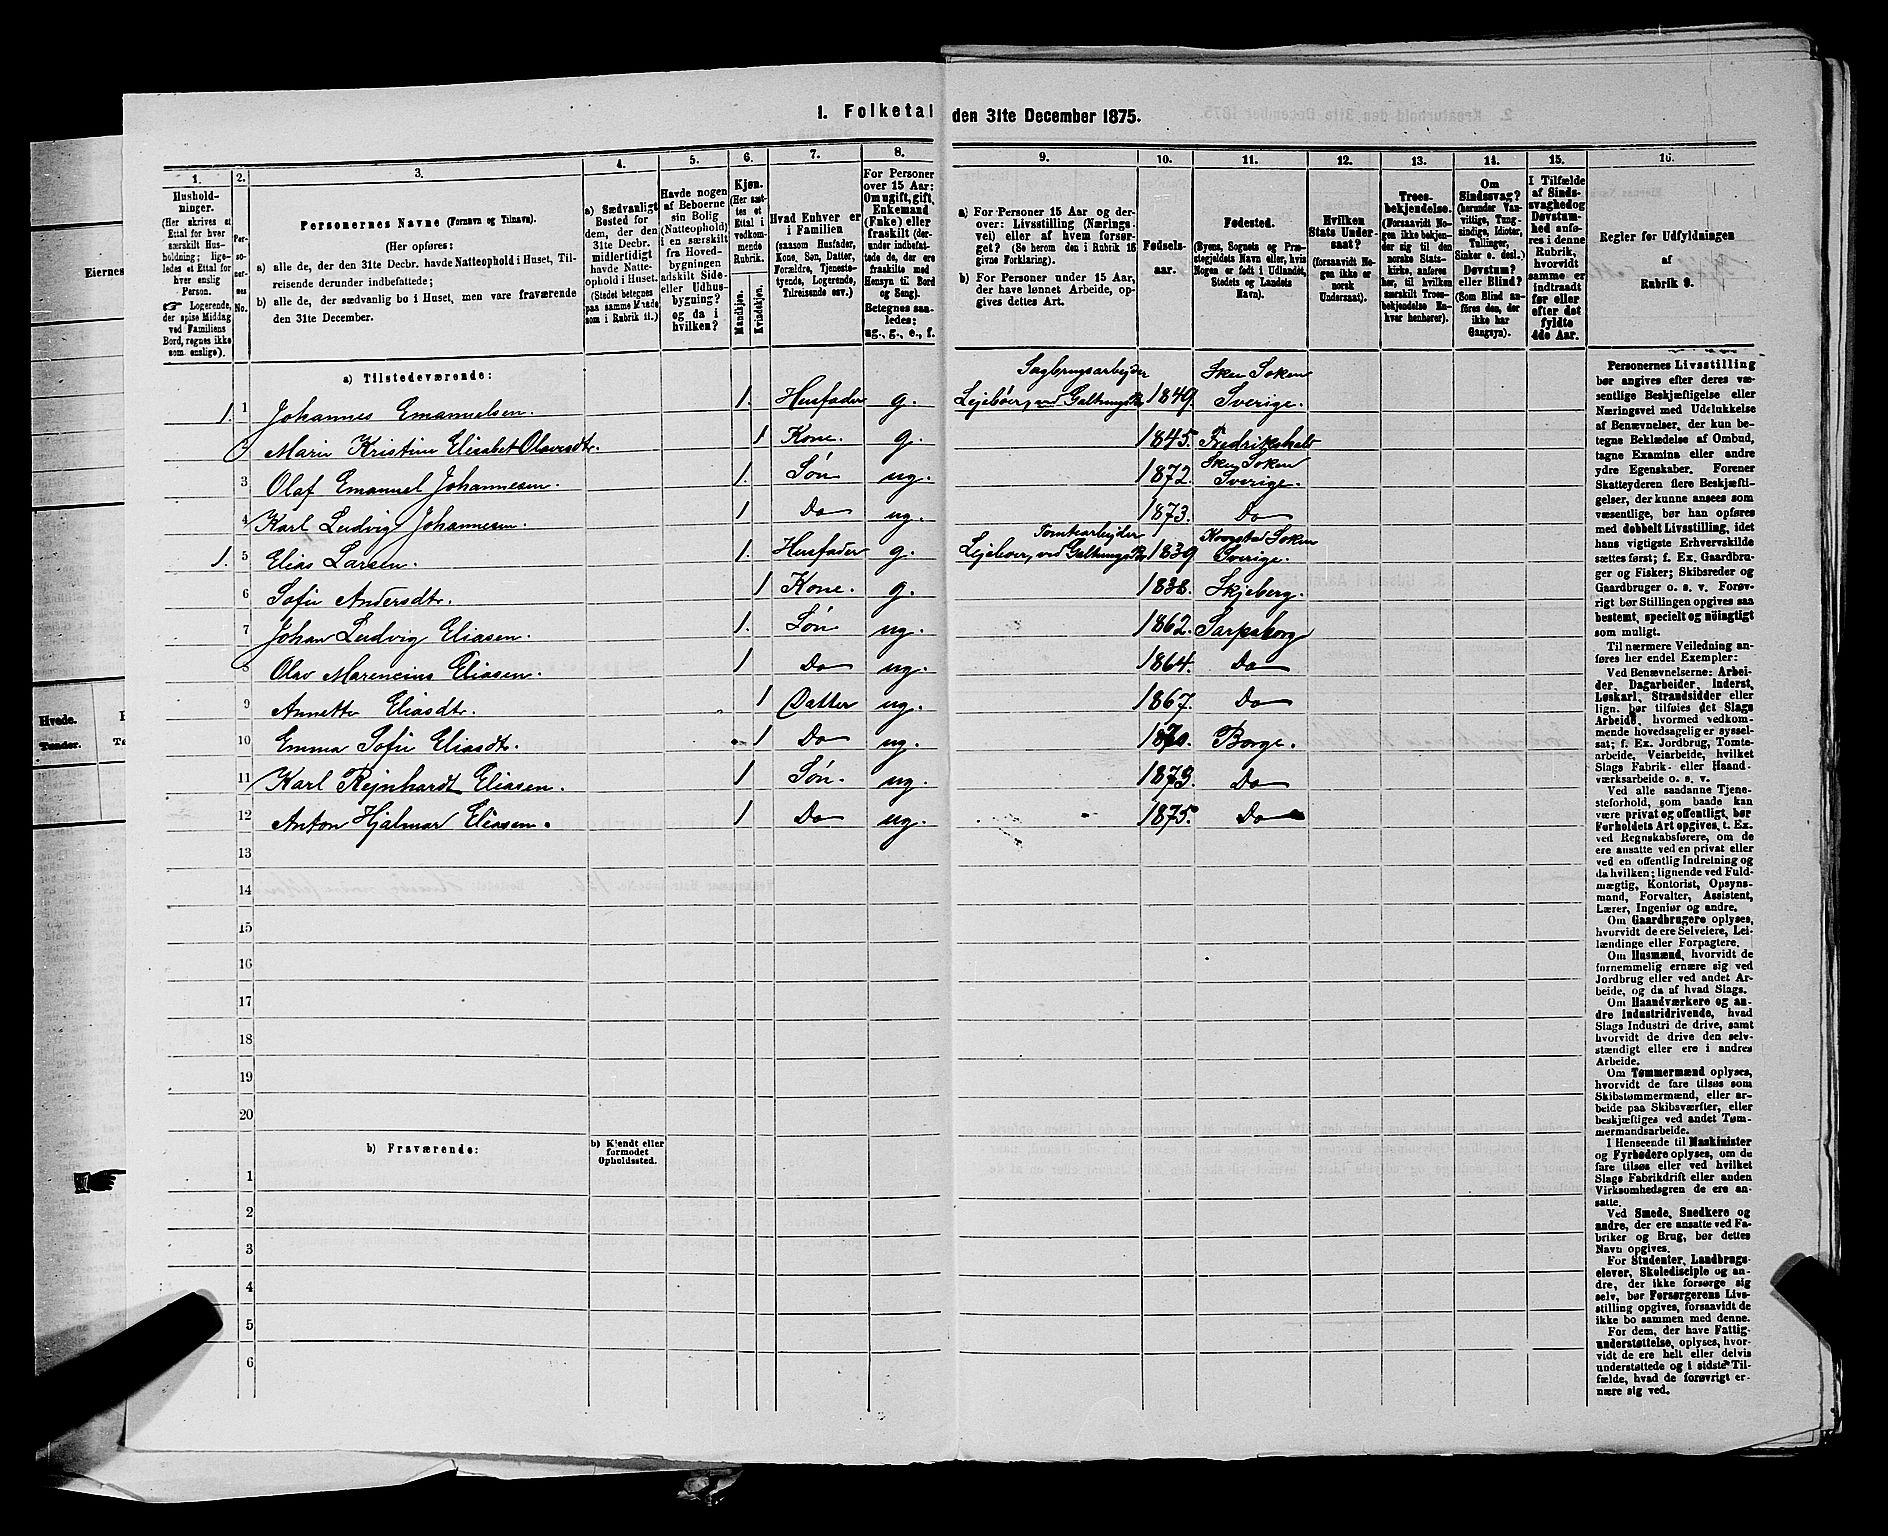 1. Folketal den 31te December 1875.
1.
Hushold-
ninger.
(Her skrives et
Ettal for hver
særskilt Hus-
holdning; lige-
ledes et Ettal for
hver enslig
Person.
Logerende,
der spise Middag
ved Familiens
Bord, regnes ikke
som enslige).
2.
Per-
so-
ner-
nes
No.
3.
Personernes Navne (Fornavn og Tilnavn).
(Her opføres:
a) alle de, der den 31te Decbr. havde Natteophold i Huset, Til-
reisende derunder indbefattede;
b) alle de, der sædvanlig bo i Huset, men vare fraværende
den 31te December.
4.
a) Sædvanligt
Bosted for
dem, der den
31te Decbr.
midlertidigt
havde Natte-
ophold i Huset.
(Stedet betegnes
paa samme Maade
som i Rubrik 11.)
5.
Havde nogen
af Beboerne
sin Bolig
(Natteophold)
i en særskilt
fra Hoved-
bygningen
adskilt Side-
eller Udhus-
bygning?
og da i
hvilken?
6.
Kjøn.
(Her sæt-
tes et
Ettal i
vedkom-
mende
Rubrik.
Mandkjøn.
Kvindekjøn.
7.
Hvad Enhver er
i Familien
(saasom Husfader,
Kone, Søn, Datter,
Forældre, Tjeneste-
tyende, Logerende,
Tilreisende osv.)
8.
For Personer
over 15 Aar:
Om ugift, gift,
Enkemand
(Enke) eller
fraskilt (der-
under indbefat-
tede de, der ere
fraskilte med
Hensyn til Bord
og Seng).
Betegnes saa-
ledes:
ug., g., e., f.
9.
a) For Personer 15 Aar og der-
over: Livsstilling (Nærings-
vei) eller af hvem forsør-
get? (Se herom den i Rubrik 16
givne Forklaring).
b) For Personer under 15 Aar,
der have lønnet Arbeide, op-
gives dettes Art.
10.
Fødsels-
aar.
11.
Fødested.
(Byens, Sognets og Præ-
stegjeldets Navn eller, hvis
Nogen er født i Udlandet,
Stedets og Landets
Navn).
12.
Hvilken
Stats Under-
saat?
(forsaavidt No-
gen ikke er
norsk
Undersaat).
13.
Troes-
bekjendelse.
(Forsaavidt No-
gen ikke bekjen-
der sig til den
norske Stats-
kirke, anføres
her, til hvilken
særskilt Troes-
bekjendelse En-
hver henhører).
14.
Om
Sindssvag?
(herunder Van-
vittige, Tung-
sindige, Idioter,
Tullinger,
Sinker o. desl.)
Døvstum?
eller Blind?
(Som Blind an-
føres den, der
ikke har
Gangsyn).
15.
I Tilfælde
af Sinds-
svaghed og
Døvstum-
hed anfø-
res i denne
Rubrik,
hvorvidt
samme er
indtraadt
før eller
efter det
fyldte
4de Aar.
16.
Regler for Udfyldningen
af
Rubrik 9.
a) Tilstedeværende:
1. 1 Johannes Emanuelsen. 1. Husfader g. Sagbrugsarbejder Lejeboer, ved Galtungs 1849. Sken Soken Sverige.
2 Marie Kristine Elisabet Olavsdtr. 1 Kone. g. 1845. Fredrikshald
3 Olaf Emanuel Johannesen. 1. Søn ug. 1872. Sken Soken Sverige.
4 Karl Ludvig Johannesen. 1 Do ug. 1873. Do
1. 5 Elias Larsen. 1. Husfader g. Tomtearbejder Lejeboer, ved Galtungs 1839 Soken Sverige.
6 Sofie Andersdtr. 1 Kone. g. 1838. Skjeberg.
7 Johan Ludvig Eliasen. 1. Søn ug. 1862. Sarpsborg
8 Olav Marencius Eliasen. 1 Do ug. 1864. Do
9 Annette Eliasdtr. 1 Datter ug. 1867. Do
10 Emma Sofie Eliasdtr. 1 Do ug. 1870. Borge.
11 Karl Rejnhardt Eliasen. 1 Søn. ug. 1873. Do
12 Anton Hjalmar Eliasen. 1 Do ug. 1875. Do
13
14
15
16
17
18
19
20
b) Fraværende:
b) Kjendt eller
formodet
Opholdssted.
1
2
3
4
5
6
Personernes Livsstilling
bør angives efter deres væ-
sentlige Beskjæftigelse eller
Næringsvei med Udelukkelse
af Benævnelser, der kun be-
tegne Beklædelse af Ombud,
tagne Examina eller andre
ydre Egenskaber. Forener
Skatteyderen flere Beskjæfti-
gelser, der kunne ansees som
væsentlige, bør han opføres
med dobbelt Livsstilling, idet
hans vigtigste Erhvervskilde
sættes først; f. Ex. Gaardbru-
ger og Fisker; Skibsreder og
Gaardbruger o. s. v. Forøv-
rigt bør Stillingen opgives saa
bestemt, specielt og nøiagtigt
som muligt.
Til nærmere Veiledning an-
føres her endel Exempler:
Ved Benævnelserne: Arbei-
der, Dagarbeider, Inderst,
Løskarl, Strandsidder eller
lign. bør tilføies det Slags
Arbeide, hvormed vedkom-
mende hovedsagelig er syssel-
sat; f. Ex. Jordbrug, Tomte-
arbeide, Veiarbeide, hvilket
Slags Fabrik- eller Haand-
værksarbeide o. s. v.
Ved alle saadanne Tjene-
steforhold, som baade kan
være privat og offentligt, bør
Forholdets Art opgives, t. Ex.
ved Regnskabsførere, om de
ere ansatte ved en privat eller
ved en offentlig Indretning og
da hvilken; lignende ved Fuld-
mægtig, Kontorist, Opsyns-
mand, Forvalter, Assistent,
Lærer, Ingeniør og andre.
Om Gaardbrugere oplyses,
hvorvidt de ere Selveiere, Lei-
lændinge eller Forpagtere.
Om Husmænd, hvorvidt de
fornemmelig ernære sig ved
Jordbrug eller ved andet Ar-
beide, og da af hvad Slags.
Om Haandværkere og an-
dre Industridrivende, hvad
Slags Industri de drive, samt
hvorvidt de drive den selv-
stændigt eller ere i andres
Arbeide.
Om Tømmermænd oplyses,
hvorvidt de fare tilsøs som
Skibstømmermænd, eller ar-
beide paa Skibsværfter, eller
beskjæftiges ved andet Tøm-
mermandsarbeide.
I Henseende til Maskinister
og Fyrbødere oplyses, om de
fare tilsøs eller ved hvilket
Slags Fabrikdrift eller anden
Virksomhedsgren de ere an-
satte.
Ved Smede, Snedkere og
andre, der ere ansatte ved Fa-
briker og Brug, bør dettes
Navn opgives.
For Studenter, Landbrugs-
elever, Skoledisciple og an-
dre, der ikke forsørge sig
selv, bør Forsørgerens Livs-
stilling opgives, forsaavidt de
ikke bo sammen med denne.
For dem, der have Fattig-
understøttelse, oplyses, hvor-
vidt de ere helt eller delvis
understøttede og i sidste Til-
fælde, hvad de forøvrigt er-
nære sig ved.
Eiernes
Hvede.
Tønder.